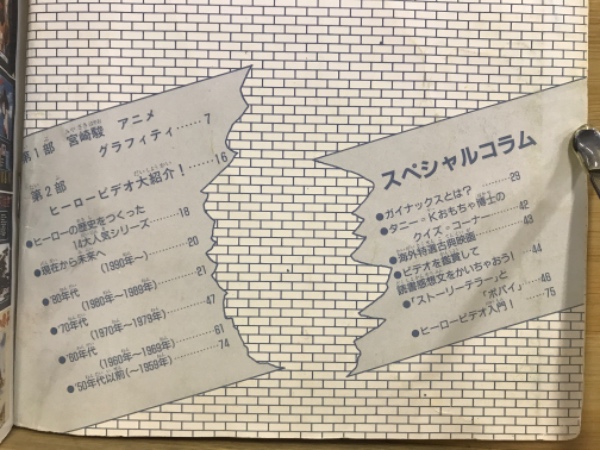 第1部 宮崎駿 アニメ
グラフィティ……7
第2部
ヒーロービデオ大紹介!……16
●ヒーローの歴史をつくった
14大人気シリーズ……18
●現在から未来へ
(1990年〜)……20
●'80年代
(1980年〜1989年)……21
●'70年代
(1970年〜1979年)……47
●'60年代
(1960年〜1969年)……61
●'50年代以前(〜1959年)……74
スペシャルコラム
●ガイナックスとは?……29
●タニー・Kおもちゃ博士の
クイズ・コーナー……42
●海外特選古典映画……43
●ビデオを鑑賞して
読書感想文をかいちゃおう!……44
●「ストーリーテラー」と
「ポパイ」……46
●ヒーロービデオ入門!……76